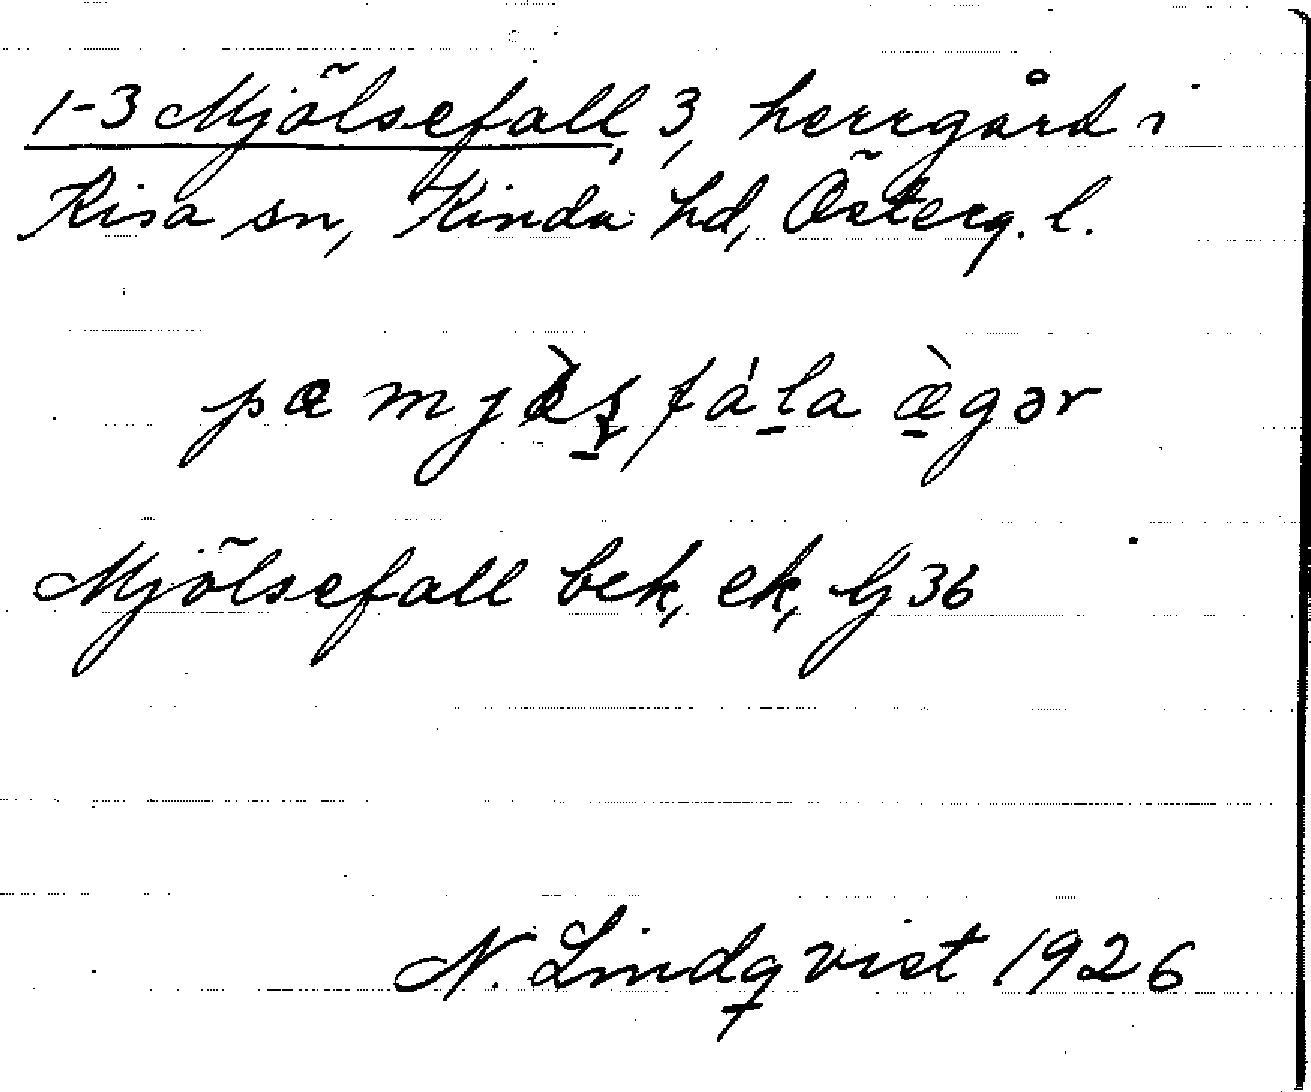 1-3 Mjölsefall, 3, herrgård i
Kisa sn, Kinda hd, Österg. l.
pæ mjö̀s̱fáḻa æ̱̀gər
Mjölsefall bek, ek, Gj 36
N. Lindqvist 1926